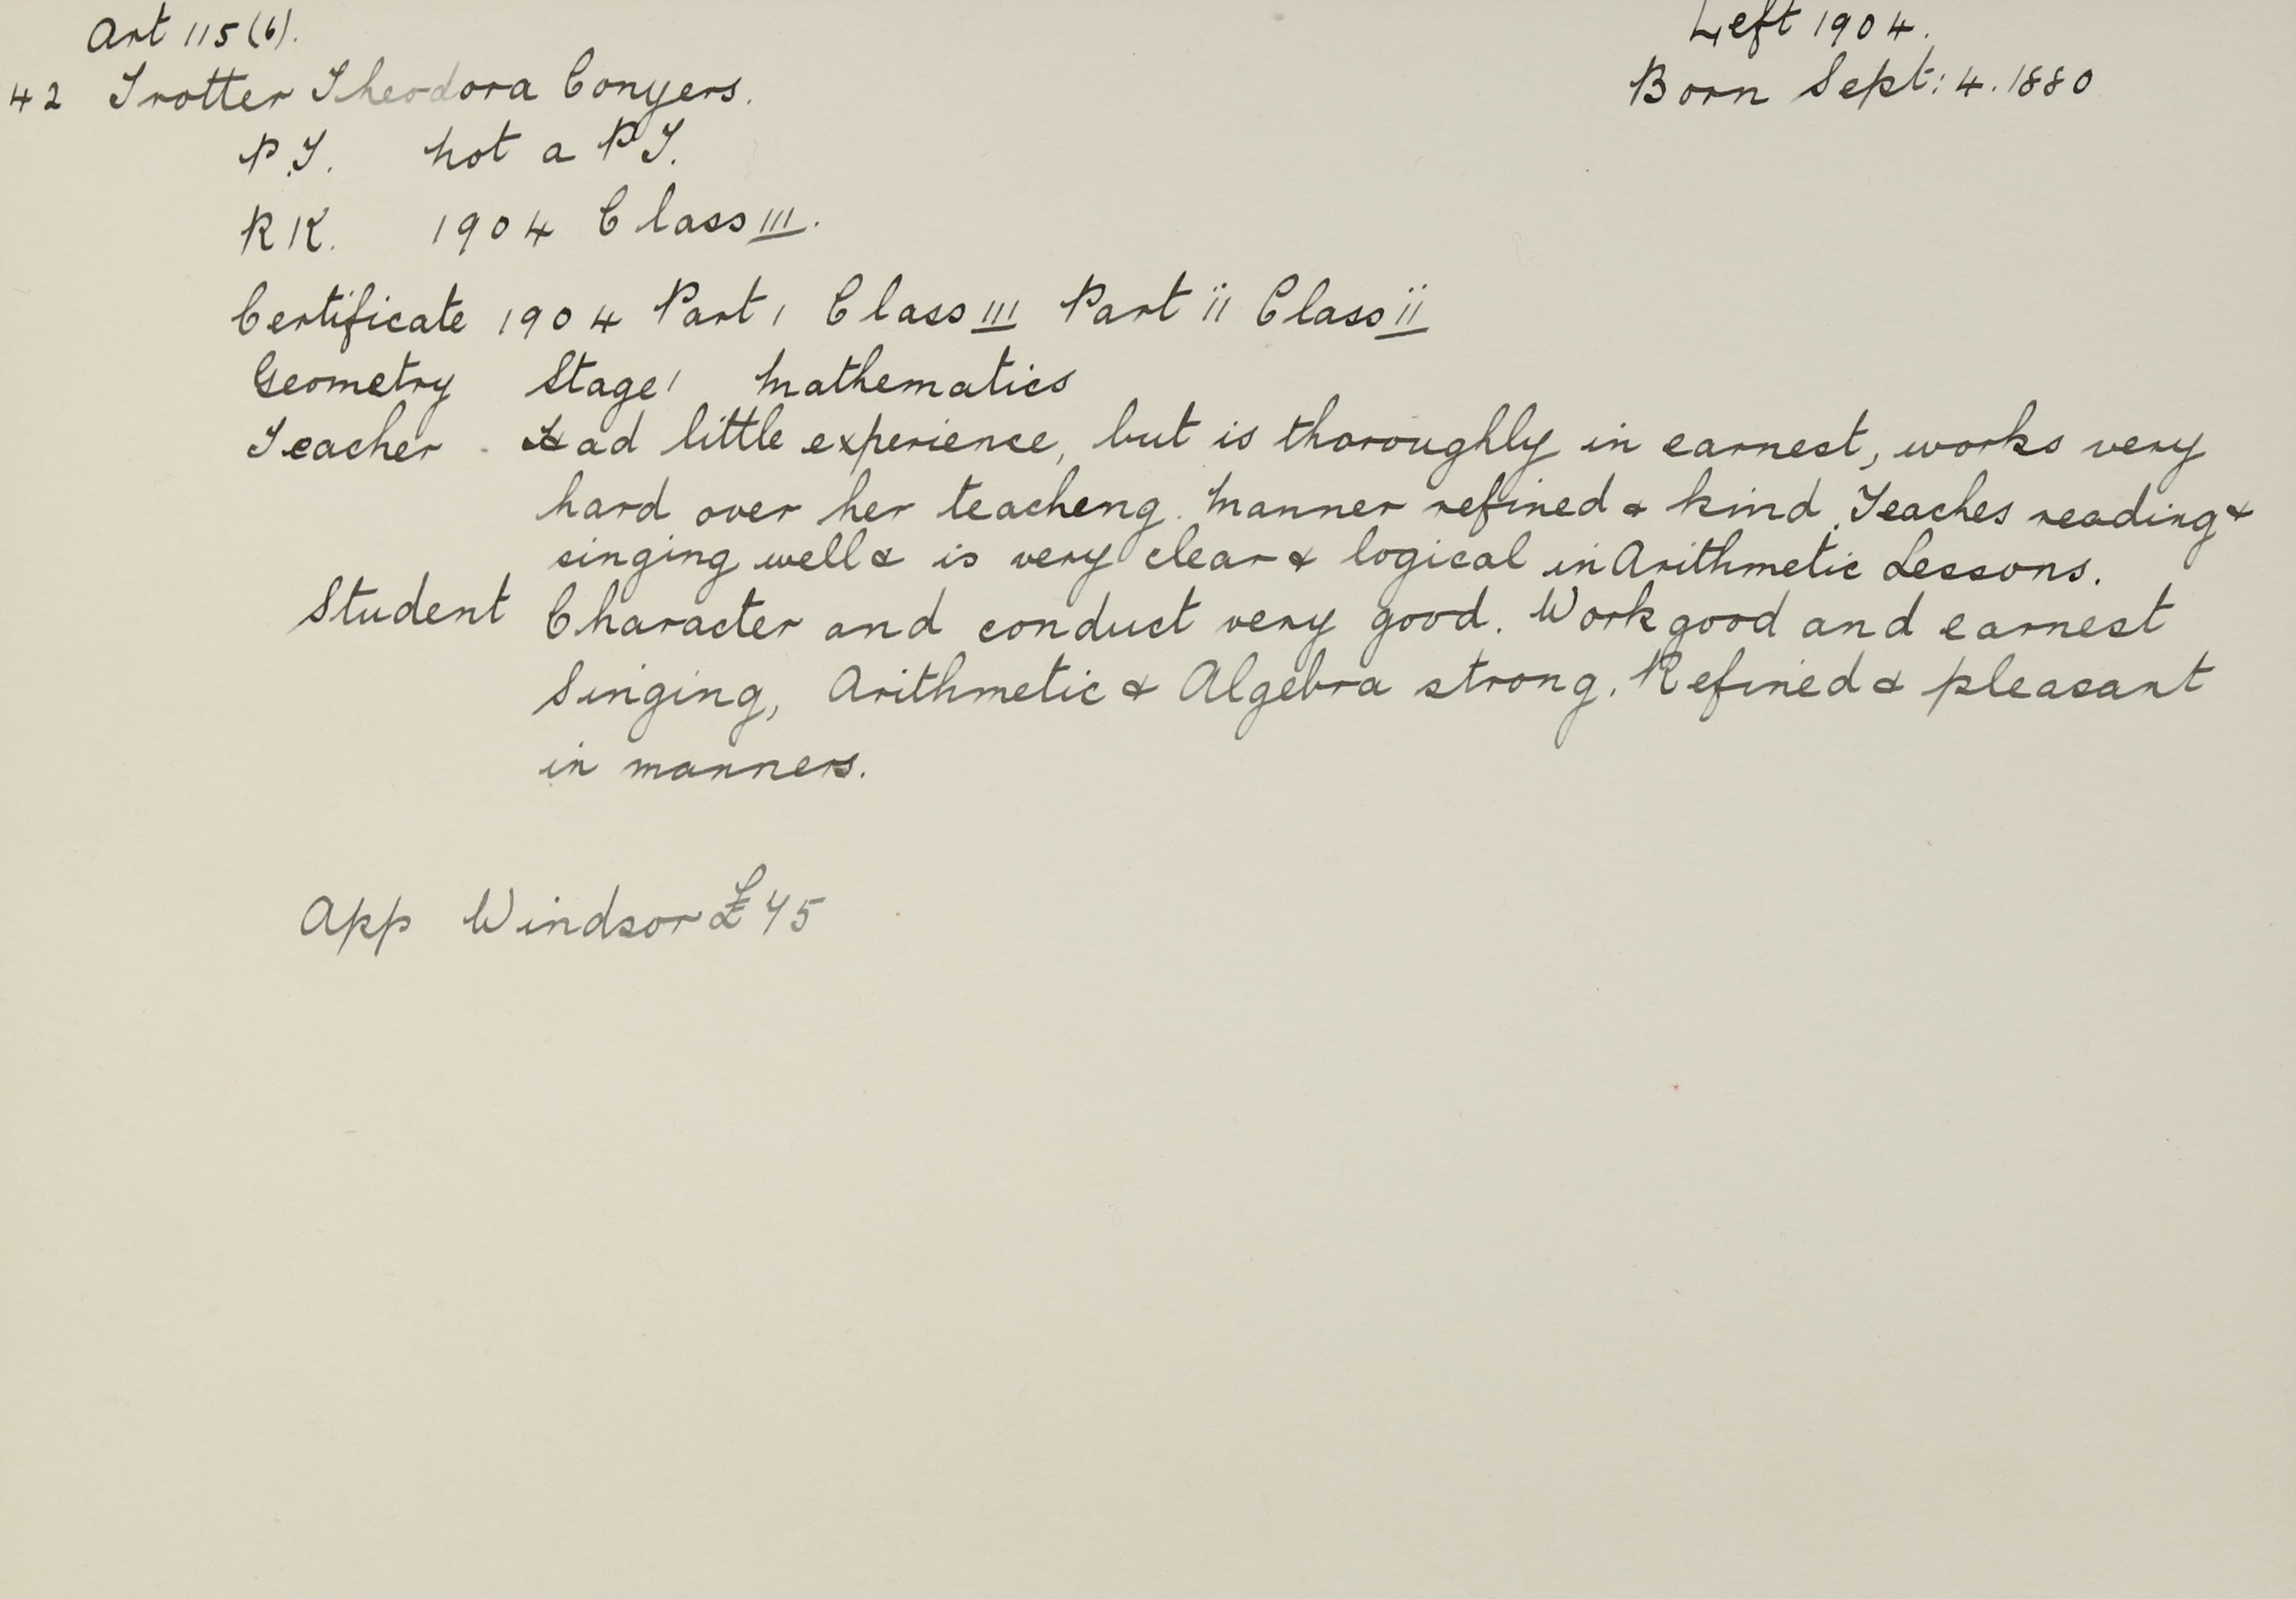 Art 115(b).
Left 1904.
42 Trotter Theodora Conyers.
Born Sept: 4. 1880
P.T. not a P.T.
R K. 1904 Class III.
Certificate 1904 Part 1 Class III Part ii Class ii
Geometry Stage 1 Mathematics
Teacher - Had little experience, but is thoroughly in earnest, works very
hard over her teacheng. Manner refined & kind. Teaches reading &
singing well & is very clear & logical in Arithmetic Lessons.
Student Character and conduct very good. Work good and earnest
Singing, Arithmetic & Algebra strong. Refined & pleasant
in manners.
App Windsor £45